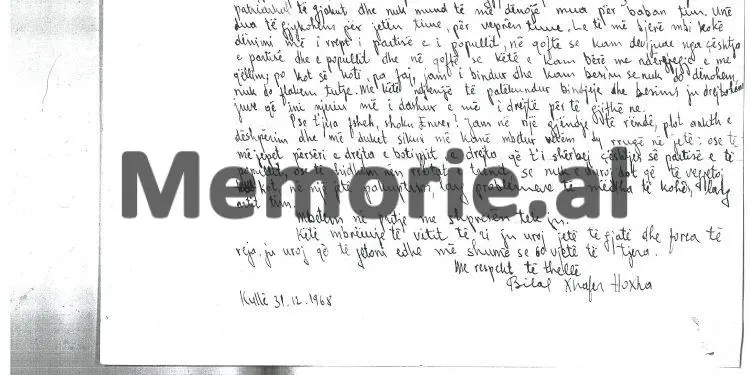 patriarkal të gjakut dhe nuk mund të më dënojë mua për baban tim. Unë
dua të gjykohem për jetën time, për veprën time. Le të më bjerë mbi kokë
dënimi më i rreptë i partisë e i popullit, në qoftë se kam devijuar nga çështja
e partisë dhe e popullit dhe në qoftë se këtë e kam bërë me ndërgjegje e me
qëllim; po kot së koti, pa faj, jam i bindur dhe kam besim se nuk do dënohem,
nuk do flaken tutje. Me këtë ndjenjë të patëkundur bindjeje dhe besimi ju drejtohem
juve që jini njeriu më i dashur e më i drejtë për të gjithë ne.
Pse t'jua fsheh, shoku Enver? Jam në një gjendje të rëndë, plot ankth e
dëshpërim dhe më duket sikur më kanë mbetur vetëm dy rrugë në jetë: ose të
më jepet përsëri e drejta e botimit, e drejta që t'i shërbej çështjes së partisë e të
popullit, ose të hidhem nën rrotat e trenit, se nuk e duroj dot që të vegjetoj
kot në një jetë pa kuptim, larg problemeve të mëdha të kohës, larg
artit tim.
Memorie.al
Mbetem në pritje me shpresën tek ju.
Këtë mbrëmje të vitit të ri ju uroj jetë të gjatë dhe forca të
reja, ju uroj që të jetoni edhe më shumë se 60 vjetë të tjera.
Me respekt të thellë
Bilal Xhafer Hoxha
Kullë 31.12.1968